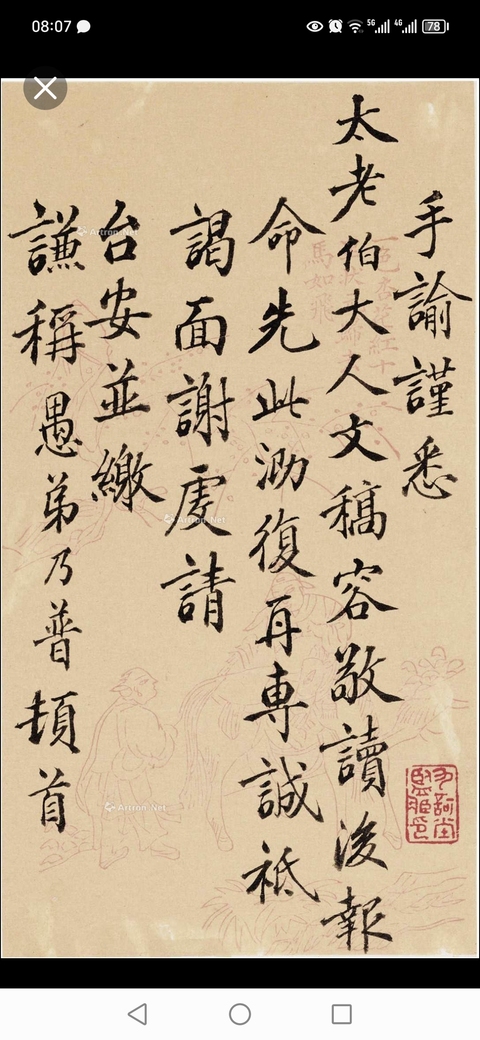 08:07
5G
4G
78
手諭謹悉
太老伯大人文稿容敬讀後報
命先此泐復再専誠祗
謁面謝虔請
台安並繳
謙稱 愚弟乃普頓首
馬如飛
Artron.Net
Artron.Net
Artron.Net